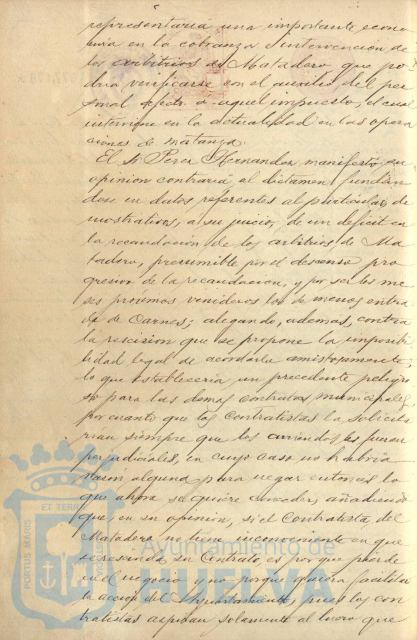 representaria una importante econo
mia en la cobranza é intervencion de
los arbitrios de Matadero que po
dria verificarse con el auxilio del per
sonal afecto a aquel impuesto, el cual
interviene en la actualidad en las opera
ciones de matanza.
El Sr Perez Hernandez manifestó su
opinion contraria al dictamen fundan
dose en datos referentes al particular, de
mostrativos, a su juicio, de un deficit en
la recaudacion de los arbitrios de Ma
tadero, presumible por el descenso pro
gresivo de la recaudacion, y por ser los me
ses proximos venideros los de menos entra
da de Carnes; alegando, ademas, contra
la rescision que se propone la imposibi
lidad legal de acordarla amistosamente,
lo que estableceria un precedente peligro
so para las demas contratas municipales,
por cuanto que los Contratistas la solicita
rian siempre que los arriendos les fueran
perjudiciales, en cuyo caso no habria
razon alguna para negar entonces lo
que ahora se quiere conceder, añadiendo
que, en su opinion, si el Contratista del
Matadero no tiene inconveniente en que
se rescinda su Contrato, es por que pierde
en el negocio y no porque quiera
la accion del Ayuntamiento, pues los con
tratistas aspiran solamente al lucro que
PORTUS MARIS
ET TERRAE
Ayuntamiento de
HUELVA